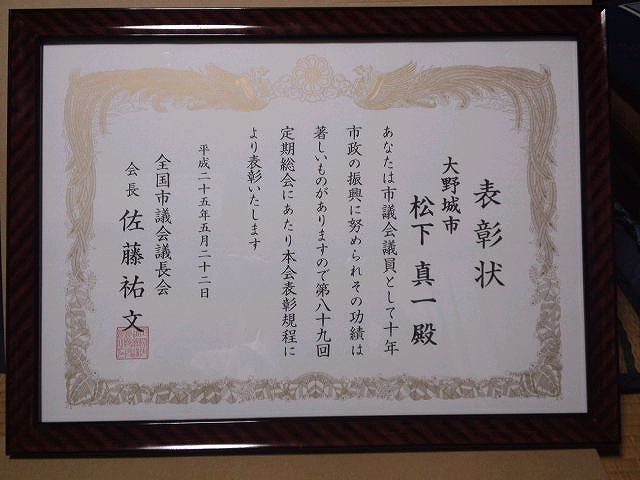 表彰状
大野城市
松下真一殿
あなたは市議会議員として十年
市政の振興に努められその功績は
著しいものがありますので第八十九回
定期総会にあたり本会表彰規程に
より表彰いたします
平成二十五年五月二十二日
全国市議会議長会
会長 佐藤祐文